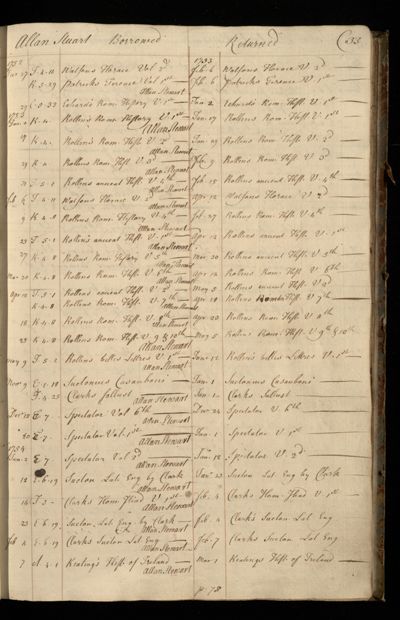 Allan Stuart Borrowed Returned 33
1752 1753
Dec 27 T. 4. 11 Watsons Horace V. 2d Feb. 6 Watsons Horace V 2d
K. 5. 39 Patricks Terence Vol 1st Feb. 6 Patricks Terence V. 1st
Allan Stewart
29 C. 5. 32 Echards Rom. History V. 1st Jan. 2 Echards Rom. Hist. V. 1st
1753
K. 4. Rollins Roman History V. 1st Jan. 17 Rollins Rom. Hist V. 1st
Allan Stewart
K. 4. Rollins Rom. Hist. V. 2d Jan 29 Rollins Rom. Hist. V. 2d
Allan Stewart
29 K. 4 Rollins Rom. Hist. V. 3d Feb. 9 Rollins Rom. Hist V 3d
Allan Stewart
T. 5. 1 Rollins ancient Hist. V. 4th Feb. 15 Rollins ancient Hist. V. 4th
Allan Stewart
Feb. 6 T. 4. 11 Watsons Horace V. 2d Apr. 12 Watsons Horace V. 2d
Allan Stewart
9 K. 4. 8 Rollins Rom. History V. 4th Feb. 27 Rollins Rom. Hist. V 4th
Allan Stewart
23 T. 5. 1 Rollins ancient Hist. V. 1st Apr. 12 Rollins ancient Hist. V. 1st
Allan Stewart
27 K. 4. 8 Rollins Rom. History V. 5th Mar 20 Rollins ancient Hist. V. 5th
Allan Stewart
Mar 20 K. 4. 8 Rollins Rom. Hist. V. 6th Apr. 12 Rollins Rom. Hist. V. 6th
Allan Stewart
Apr 12 T. 5. 1 Rollins ancient Hist. V. 2d May 5 Rollins ancient Hist. V 2d
K. 4. 8 Rollins Rom. Hist. V. 7th Apr 18 Rollins Rom. Hist. V. 7th
Allan Stewart
18 K. 4. 8 Rollins Rom. Hist. V. 8th Apr 23 Rollins Rom Hist V 8th
Allan Stewart
23 K. 4. 8 Rollins Rom. Hist. V. 9 & 10th May 5 Rollins Rom. Hist. V 9th & 10th
Allan Stewart
May 9 T. 5. 2 Rollins belles Lettres V. 1st Jan. 12 Rollin's belles Lettres V. 1st
Allan Stewart
Nov 9 E. 1. 18 Suetonius Casauboni Jan. 1 Suetonius Casauboni
4. 25 Clarks Sallust Jan. 1 Clarks Sallust
Allan Stewart
Dec 12 E. 7. Spectator Vol 6th Dec 24 Spectator V. 6th
Allan Stewart
20 E. 7. Spectator Vol. 1st Jan. 1 Spectator V. 1st
Allan Stewart
1754
Jan. 2 E. 7. Spectator Vol 2d Jan. 12 Spectator V. 2d
Allan Stewart
12 E. 6. 19 Sueton Lat Eng by Clark Jan. 23 Sueton Lat Eng by Clark
Allan Stewart
T. 3 Clarks Hom. Iliad V. 1st Feb. 4 Clarks Hom. Iliad V 1st
Allan Stewart
23 E. 6. 19 Sueton. Lat Eng by Clark Feb. 4 Clark's Sueton Lat Eng
Allan Stewart
Feb. 4 E. 6. 19 Clarks Sueton Lat Eng Feb. 7 Clarks Sueton Lat Eng
Allan Stewart
7 A. 4. 1 Keating's Hist. of Ireland Mar. 1 Keatings Hist. of Ireland
Allan Stewart
p. 78